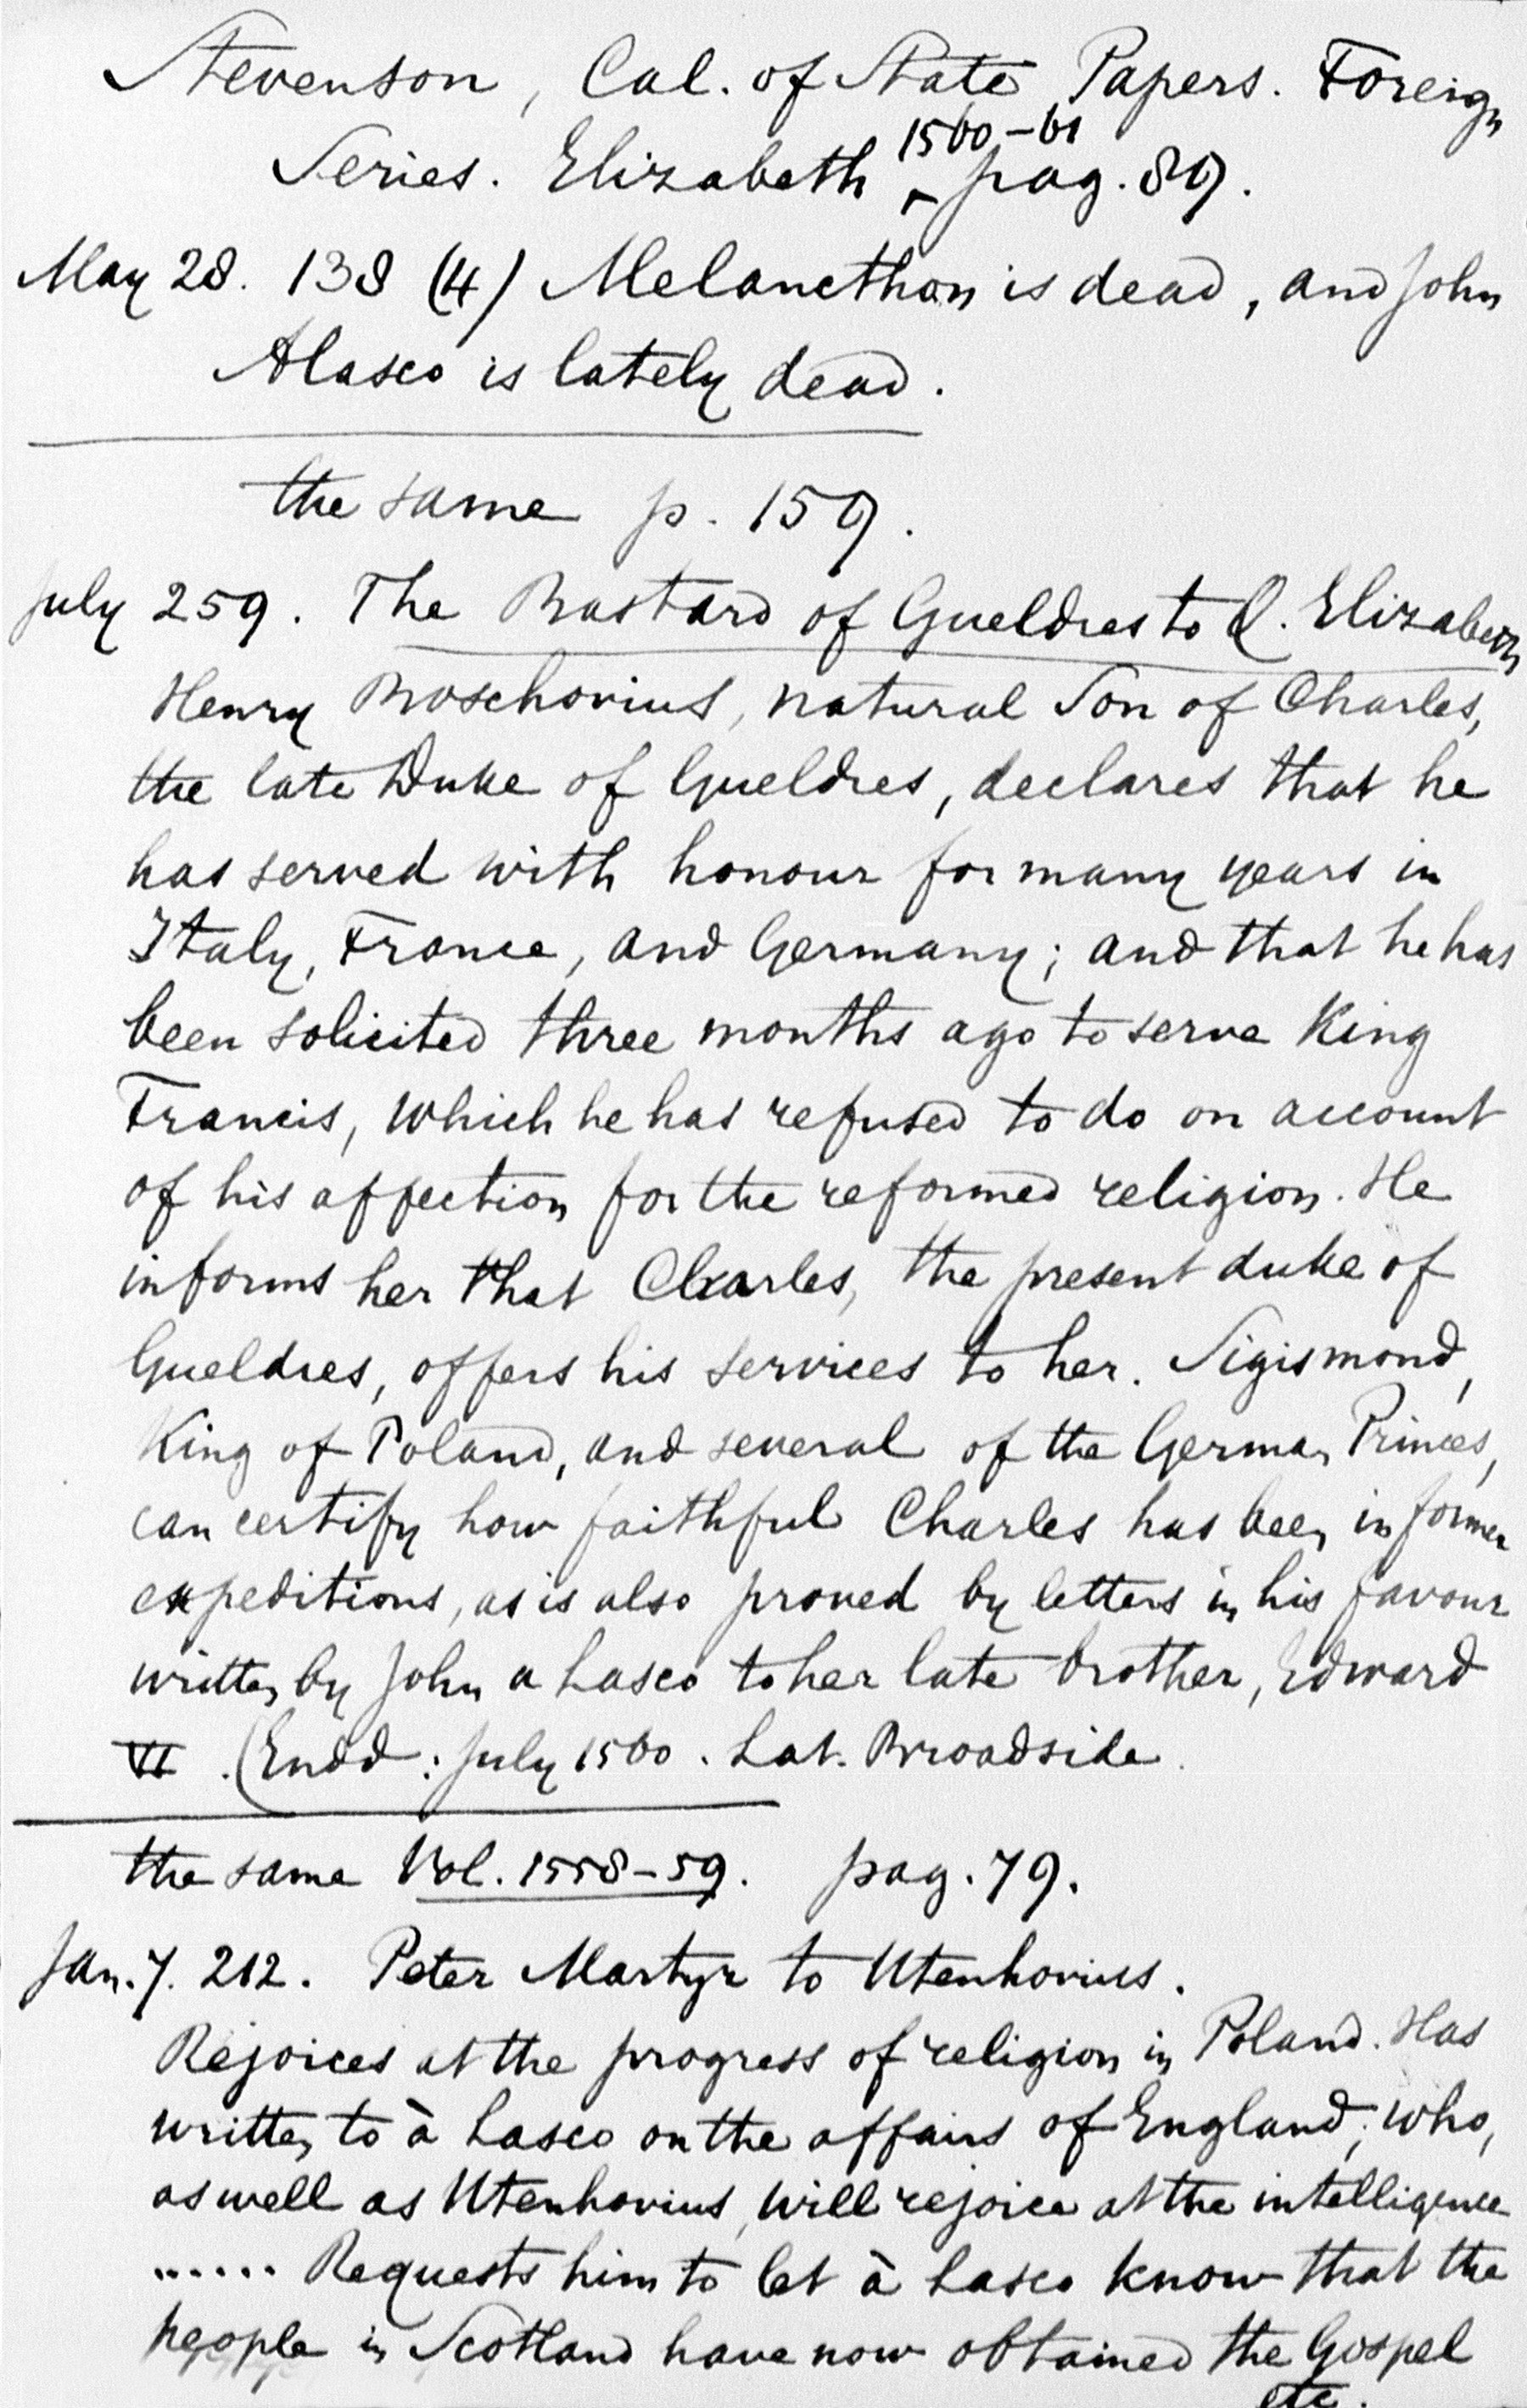 Stevenson, Cal. of State Papers. Foreign
Series. Elizabeth 1560-61 pag. 89.
May 28. 138 (4) Melancthon is dead, and John
Alasco is lately dead.
the same p. 159.
July 259. The Bastard of Gueldres to Q. Elizabeth
Henry Boschovius, natural Son of Charles,
the late Duke of Gueldres, declares that he
has served with honour for many years in
Italy, France, and Germany; and that he has
been solicited three months ago to serve King
Francis, which he has refused to do on account
of his affection for the reformed religion. He
informs her that Charles, the present duke of
Gueldres, offers his services to her. Sigismond,
King of Poland, and several of the German Princes,
can certify how faithful Charles has been in former
expeditions, as is also proved by letters in his favour
written by John a Lasco to her late brother, Edward
VI. (Endd: July 1560. Lat. Broadside.
the same Vol. 1558-59. pag. 79.
Jan. 7. 212. Peter Martyr to Utenhovius.
Rejoices at the progress of religion in Poland. Has
written to à Lasco on the affairs of England; who,
as well as Utenhovius, will rejoice at the intelligence
...... Requests him to let à Lasco know that the
people in Scotland have now obtained the Gospel
etc.